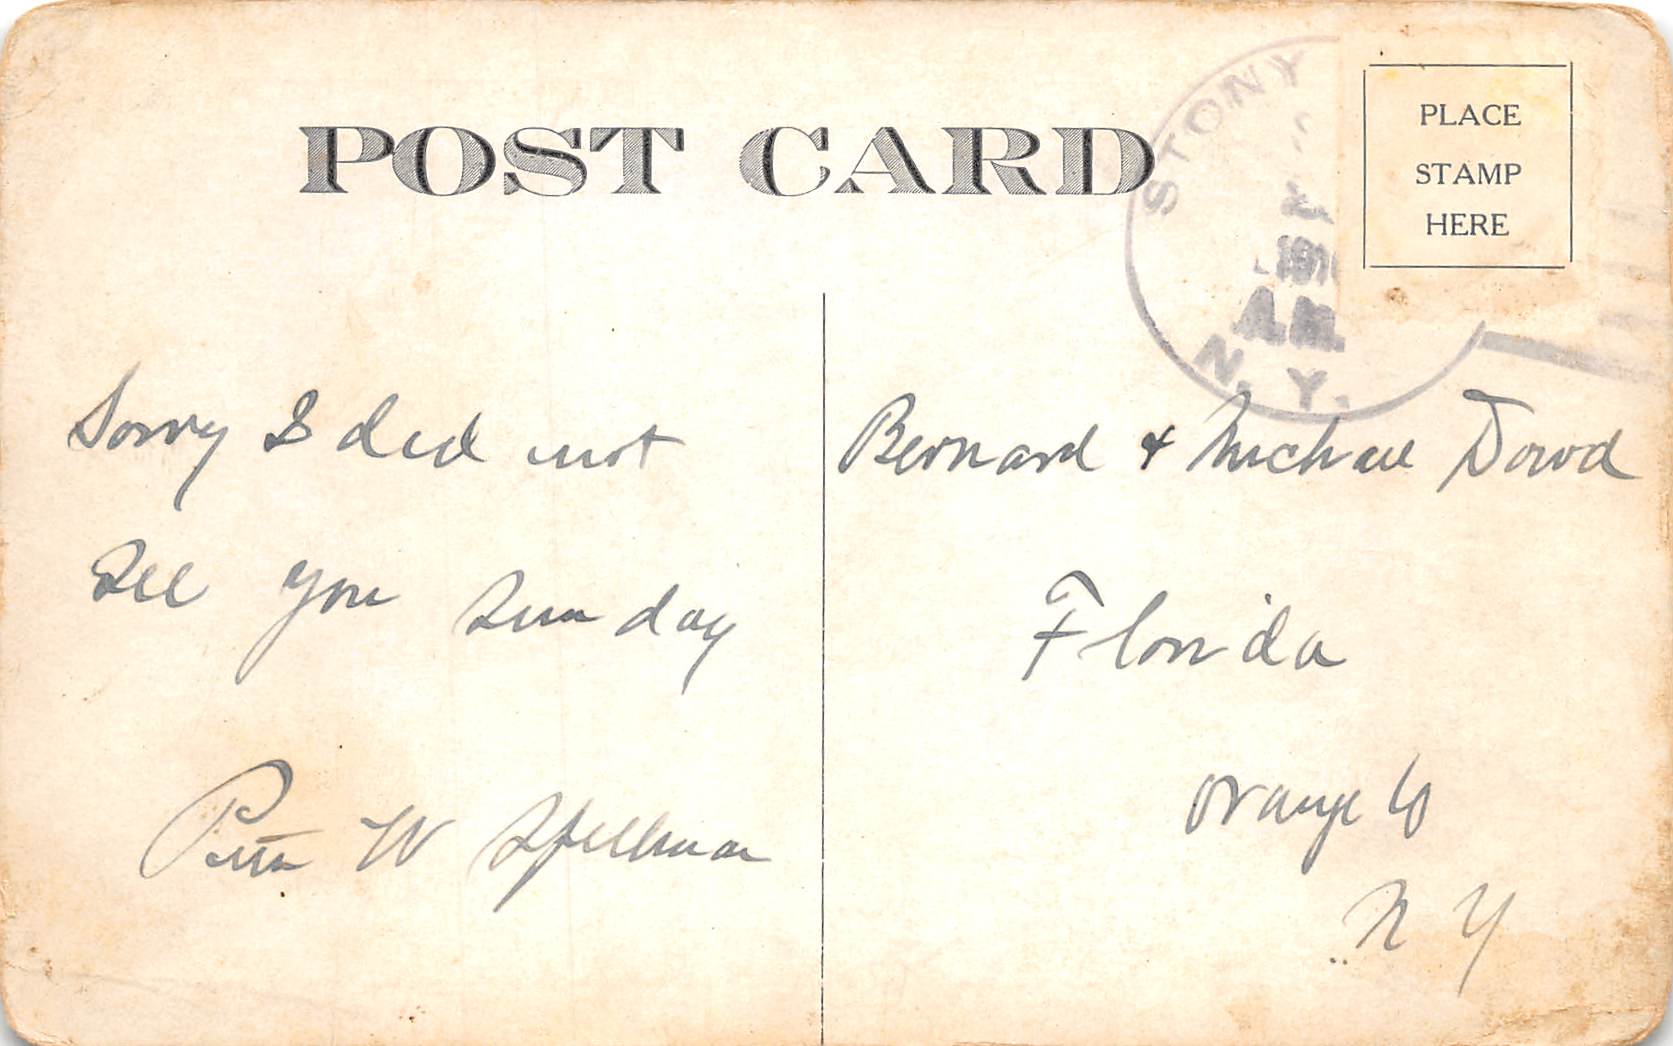 POST CARD
STONY
A.M.
N.Y.
PLACE
STAMP
HERE
Sorry I did not
See you Sunday
Peter W Spellman
Bernard & Michael Dowd
Florida
Orange Co
N Y